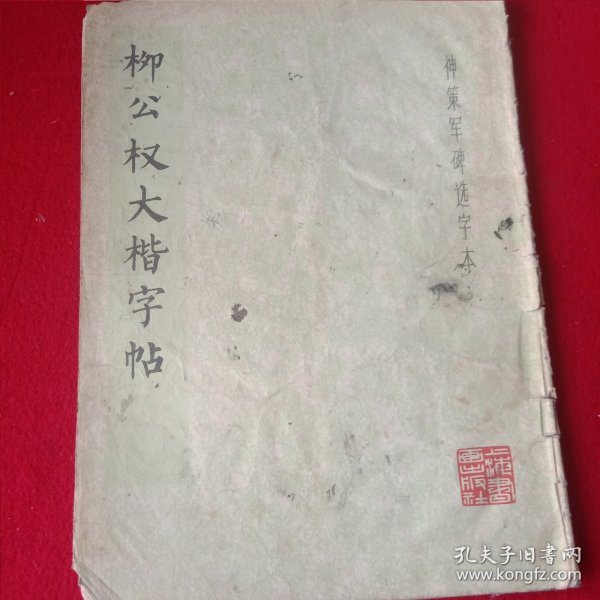 神策军碑选字本
柳公权大楷字帖
上海书画出版社
孔夫子旧书网
www.kongfz.com